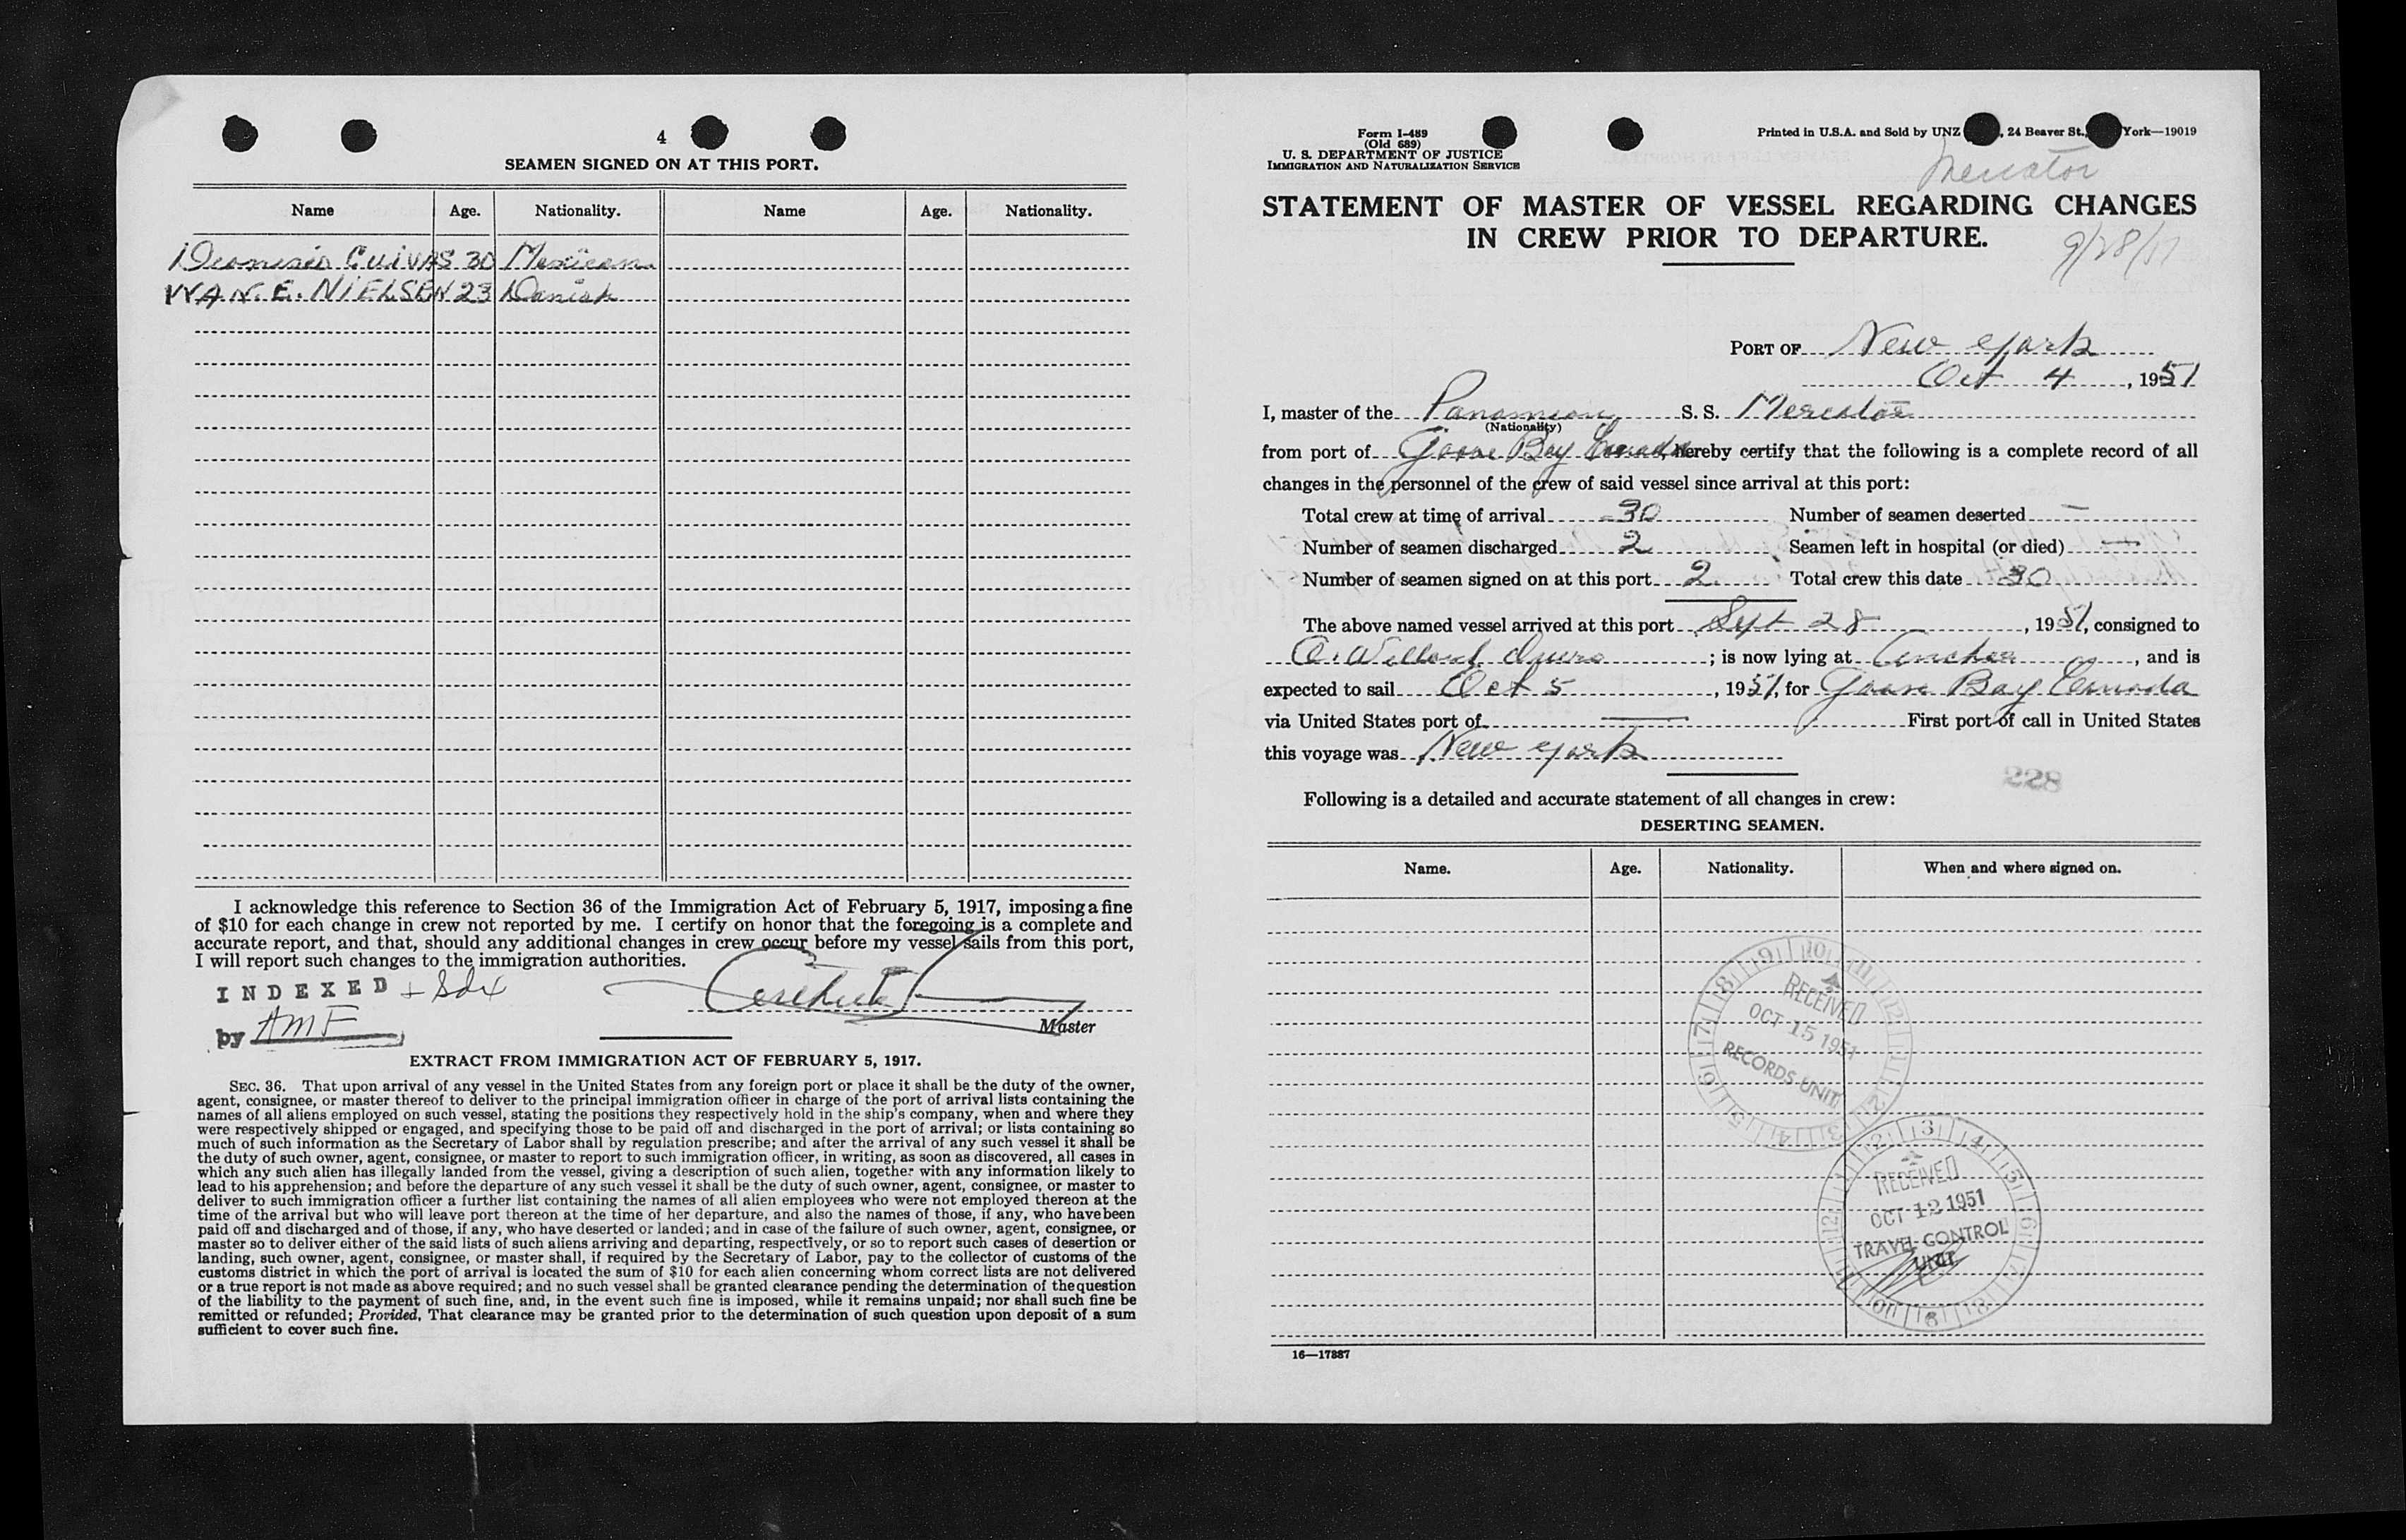 4
SEAMEN SIGNED ON AT THIS PORT.
Name Age. Nationality. Name Age. Nationality.
Dionisio CUIVAS 30 Mexican
IVAN. E. NIELSEN 23 Danish
I acknowledge this reference to Section 36 of the Immigration Act of February 5, 1917, imposing a fine
of $10 for each change in crew not reported by me. I certify on honor that the foregoing is a complete and
accurate report, and that, should any additional changes in crew occur before my vessel sails from this port,
I will report such changes to the immigration authorities.
INDEXED
by AMF
Master
EXTRACT FROM IMMIGRATION ACT OF FEBRUARY 5, 1917.
SEC. 36. That upon arrival of any vessel in the United States from any foreign port or place it shall be the duty of the owner,
agent, consignee, or master thereof to deliver to the principal immigration officer in charge of the port of arrival lists containing the
names of all aliens employed on such vessel, stating the positions they respectively hold in the ship's company, when and where they
were respectively shipped or engaged, and specifying those to be paid off and discharged in the port of arrival; or lists containing so
much of such information as the Secretary of Labor shall by regulation prescribe; and after the arrival of any such vessel it shall be
the duty of such owner, agent, consignee, or master to report to such immigration officer, in writing, as soon as discovered, all cases in
which any such alien has illegally landed from the vessel, giving a description of such alien, together with any information likely to
lead to his apprehension; and before the departure of any such vessel it shall be the duty of such owner, agent, consignee, or master to
deliver to such immigration officer a further list containing the names of all alien employees who were not employed thereon at the
time of the arrival but who will leave port thereon at the time of her departure, and also the names of those, if any, who have been
paid off and discharged and of those, if any, who have deserted or landed; and in case of the failure of such owner, agent, consignee, or
master so to deliver either of the said lists of such aliens arriving and departing, respectively, or so to report such cases of desertion or
landing, such owner, agent, consignee, or master shall, if required by the Secretary of Labor, pay to the collector of customs of the
customs district in which the port of arrival is located the sum of $10 for each alien concerning whom correct lists are not delivered
or a true report is not made as above required; and no such vessel shall be granted clearance pending the determination of the question
of the liability to the payment of such fine, and, in the event such fine is imposed, while it remains unpaid; nor shall such fine be
remitted or refunded; Provided, That clearance may be granted prior to the determination of such question upon deposit of a sum
sufficient to cover such fine.
Form I-489
(Old 689)
U. S. DEPARTMENT OF JUSTICE
IMMIGRATION AND NATURALIZATION SERVICE
Printed in U.S.A. and Sold by UNZ , 24 Beaver St., York—19019
Mercator
STATEMENT OF MASTER OF VESSEL REGARDING CHANGES
IN CREW PRIOR TO DEPARTURE.
9/28/51
PORT OF New York
Oct 4, 1951
I, master of the Panamian S. S. Mercator
(Nationality)
from port of Goose Bay Canada, hereby certify that the following is a complete record of all
changes in the personnel of the crew of said vessel since arrival at this port:
Total crew at time of arrival 30 Number of seamen deserted —
Number of seamen discharged 2 Seamen left in hospital (or died) —
Number of seamen signed on at this port 2 Total crew this date 30
The above named vessel arrived at this port Sept 28, 1951, consigned to
; is now lying at Anchor, and is
expected to sail Oct 5, 1951, for Goose Bay Canada
via United States port of — First port of call in United States
this voyage was New York
228
Following is a detailed and accurate statement of all changes in crew:
DESERTING SEAMEN.
Name. Age. Nationality. When and where signed on.
RECEIVED
OCT 15 1951
RECORDS UNIT
RECEIVED
OCT 12 1951
TRAVEL CONTROL
UNIT
16—17887